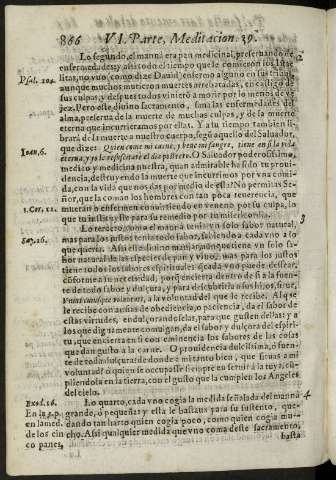 866 VI. Parte. Meditacion 39.
Lo segundo, el manná era pan medicinal, preseruando de
enfermedades: y assi todo el tiempo que le comieron los Israe
Psal. 104. litas, no vuo (como dize Dauid) enfermo alguno en sus tribus,
aunque muchos murieron muertes arrebatadas, en castigo de
sus culpas, y despues todos vinieró a morir por lo menos de ve-
jez. Pero este diuino sacramento, sana las enfermedades del
alma, preserua de la muerte de muchas culpas, y de la muerte
eterna que incurrieramos por ellas. Y a su tiempo tambien li-
brará de la muerte a nuestro cuerpo, segú aquello del Saluador,
Ioan. 6. que dize: Quien come mi carne, y beue mi sangre, tiene en si la vida
eterna, y yo le resuscitaré el dia postrero. O Saluador poderosissimo,
medico y medicina nuestra, quan admirable ha sido tu proui-
dencia, destruyendo la muerte que incurrimos por vna comi-
da, con la vida que nos das por medio de esta? No permitas Se-
ñor, que la coman los hombres con tan poca reuerencia, que
1. Cor. 11. mueran o enfermen conuirtiendo en veneno por su culpa, lo
que tu instituyste para su remedio por tu misericordia.
3
Lo tercero, como el manná tenia vn solo sabor natural,
Sap. 16. mas para los justos tenia todo sabor, sabiendo a cada vno a lo
que queria. Assi este diuino manjar, aunque tiene vn solo sa-
bor natural de las especies de pan y vino, mas para los justos
tiene todos los sabores espirituales q̃ cada vno puede dessear,
cóforme a su necessidad, porq̃ encierra dentro de si a la fuen-
te de todo sabor y dulçura, y para descubrirla a sus hijos, sirue,
Vniuscuiusque voluntati, a la voluntad del que le recibe. Al q̃ se
le recibe con ansias de obediencia, o paciencia, da el sabor de
estas virtudes, endulçorandoselas, para que gusten dellas: y a
los que dignamente comulgan, da el sabor y dulçura del espiri-
tu, que encierra en si con eminencia los sabores de las cosas
que dan gusto a la carne. O prouidencia dulcissima, ó fuen-
te de toda dulçura: de donde a mi tanto bien, que siruas a mi
voluntad? ó quien se occupasse siempre en seruir a la tuya, cū-
pliendola en la tierra, con el gusto que la cumplen los Angeles
del cielo.
4
Exod. 16. Lo quarto, cada vno cogia la medida señalada del manná
grande, ó pequeña: y esta le bastaua para su sustento, que-
dando tan harto quien cogia poco, como quien cogia mu-
cho. Assi qualquier medida que vno coma deste sacramento,
basta